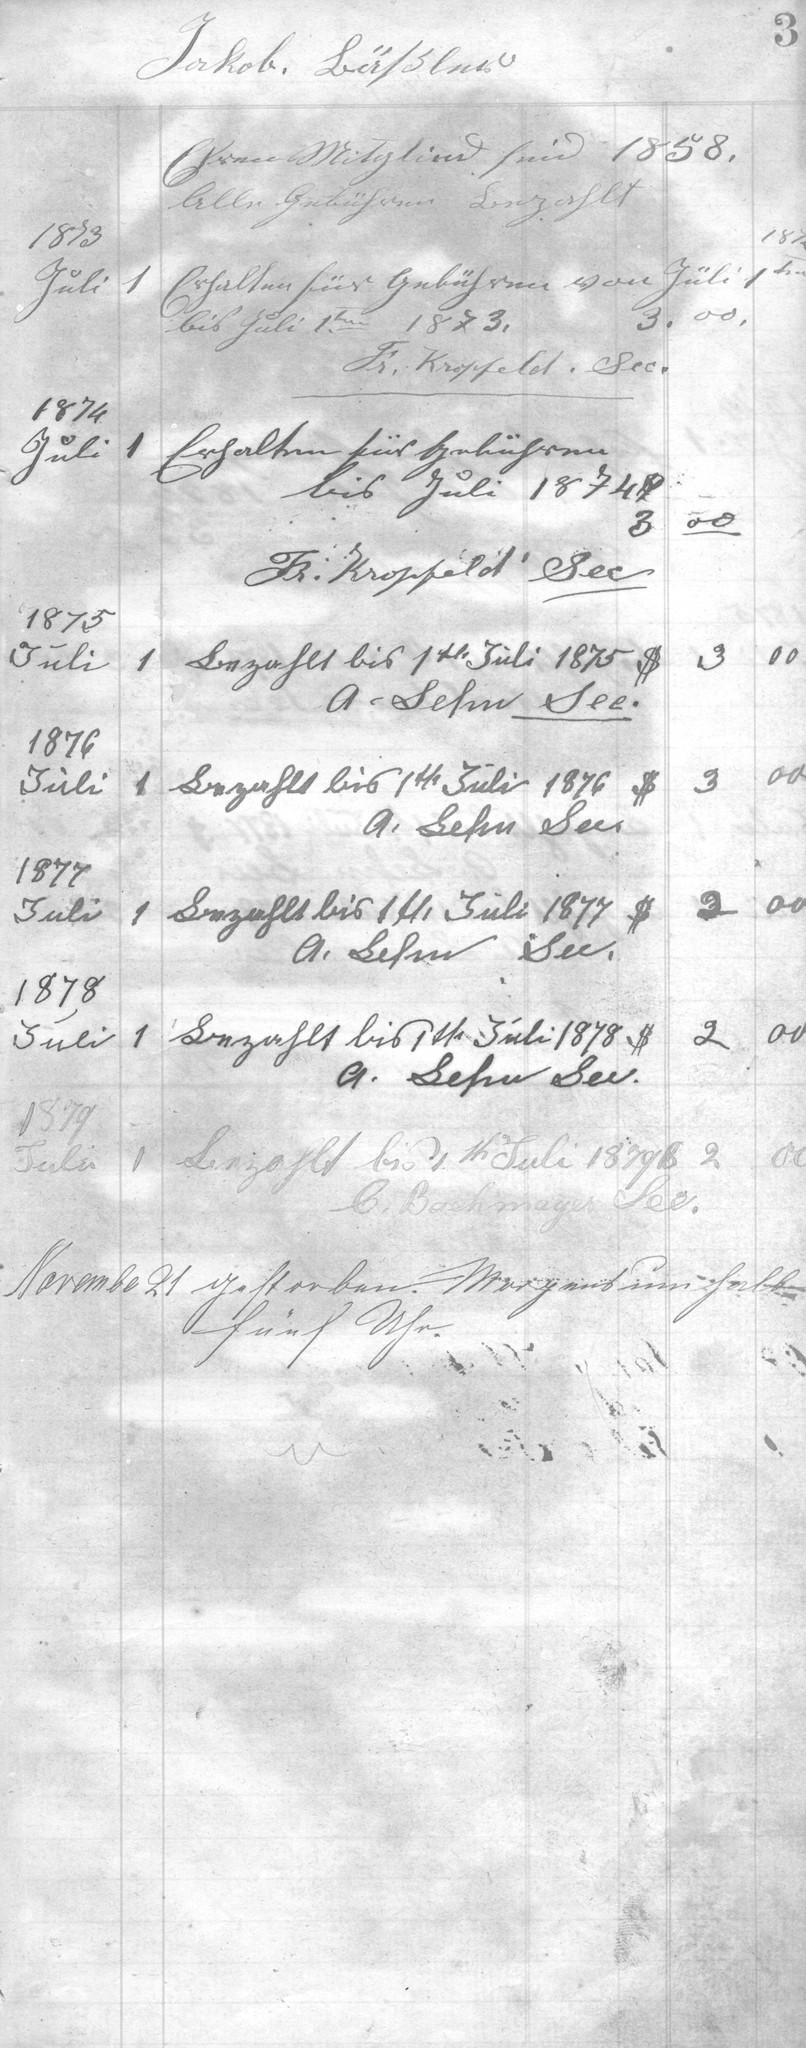 3
Jakob. Bäßler
Ehren Mitglied seid 1858.
Alle Gebühren bezahlt
1873
Juli 1 Erhalten für Gebühren von Juli 1ten 187
bis Juli 1ten 1873. 3. 00.
Fr. Kropfeld. Sec.
1874
Juli 1 Erhalten für Gebühren
bis Juli 1874 $
3 00
Fr. Kropfeld Sec
1875
Juli 1 Bezahlt bis 1th Juli 1875 $ 3 00
A. Lehn Sec.
1876
Juli 1 Bezahlt bis 1th Juli 1876 $ 3 00
A. Lehn Sec.
1877
Juli 1 Bezahlt bis 1th Juli 1877 $ 2 00
A. Lehn Sec.
1878
Juli 1 Bezahlt bis 1th Juli 1878 $ 2 00
A. Lehn Sec.
1879
Juli 1 Bezahlt bis 1th Juli 1879 $ 2 00
C. Bachmayer Sec.
Novembe 21 gestorben. Morgens um halb
fünf Uhr.